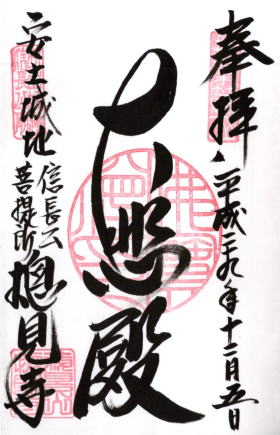 奉拝
平成二九年十二月五日
大悲殿
安土城址
信長公
菩提所
摠見寺